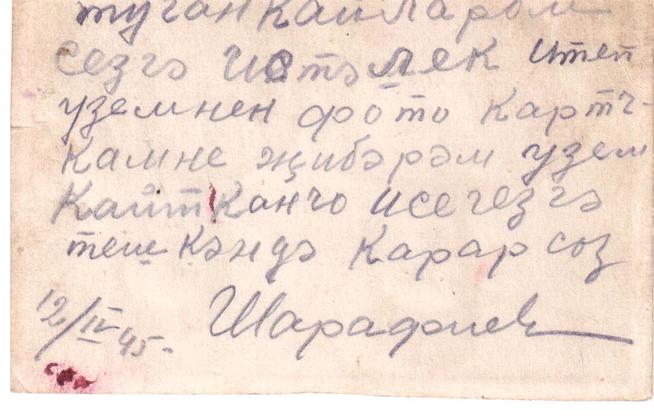 туганкайларом
сезгә истәлек итеп
уземнен фото карточ-
камне җибәрәм узем
кайтканчо исегезгә
тешкәндә карарсоз
12/IV 45.- Шарафиев